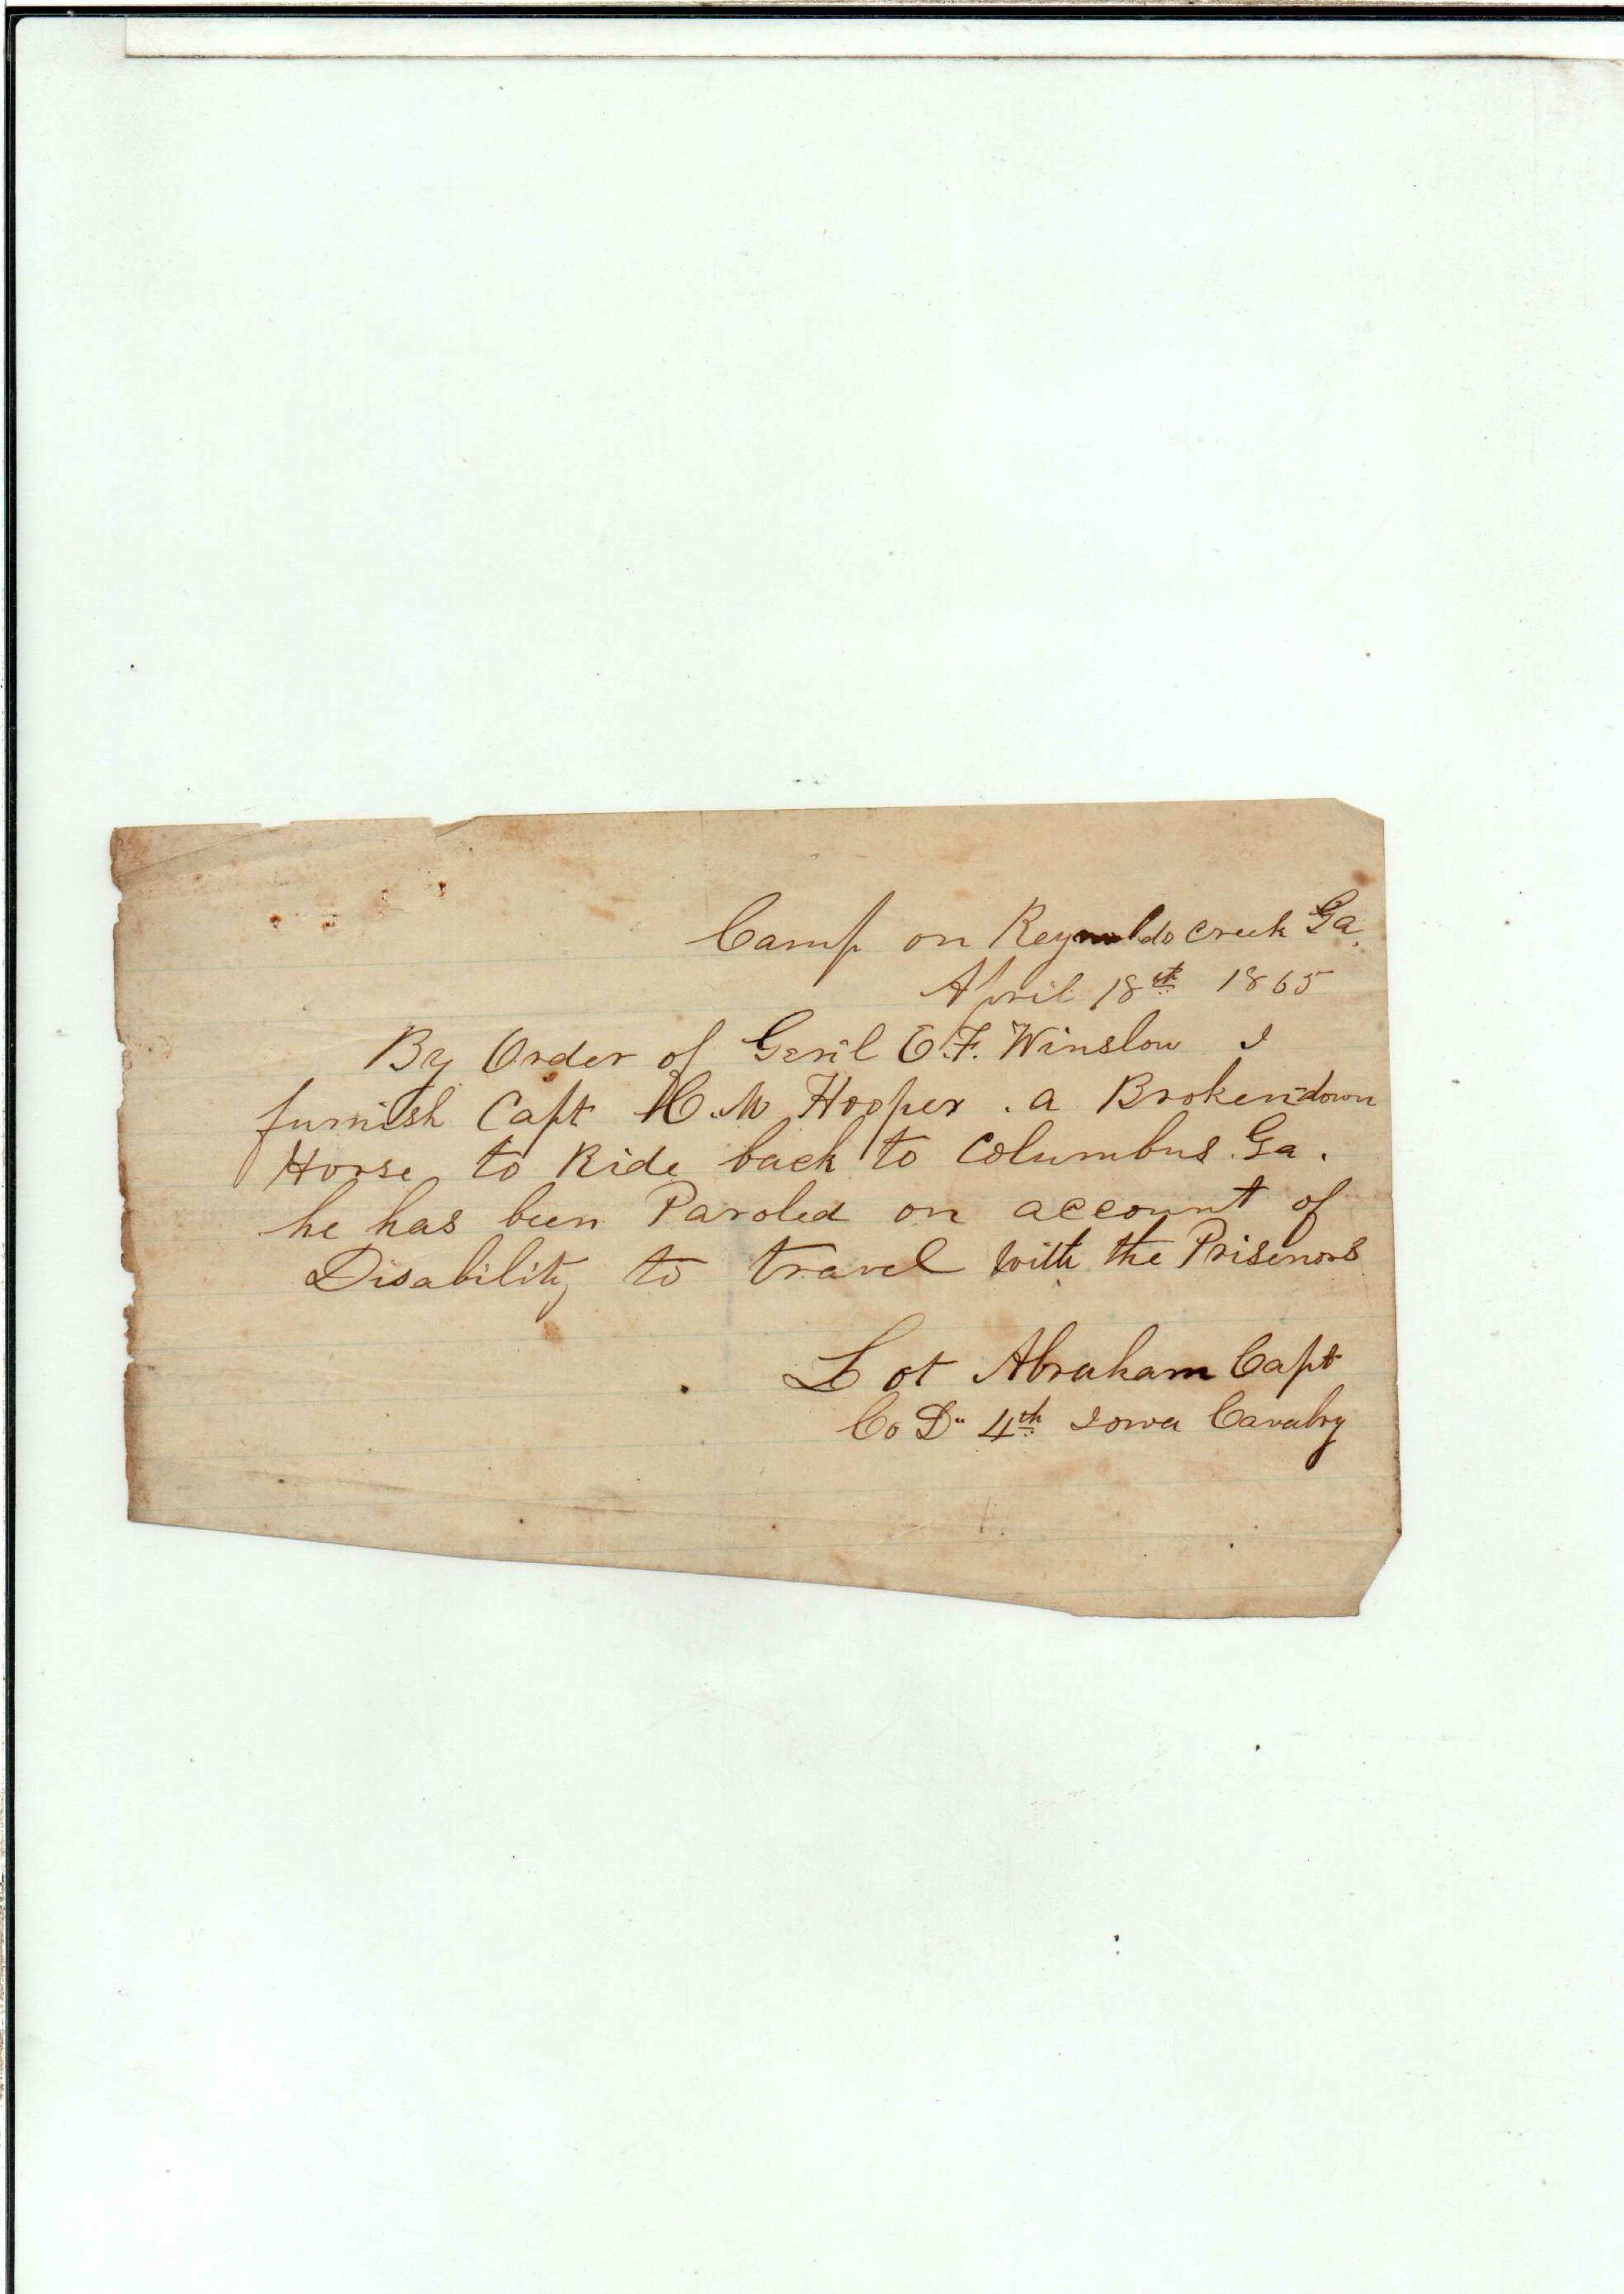 Camp on Reynolds Creek Ga.
April 18th 1865
By Order of Genl E.F. Winslow I
furnish Capt H. M Hooper . a Broken=down
Horse to Ride back to Columbus Ga.
he has been Paroled on account of
Disability to travel with the Prisenors
Lot Abraham Capt
Co D" 4th Iowa Cavalry